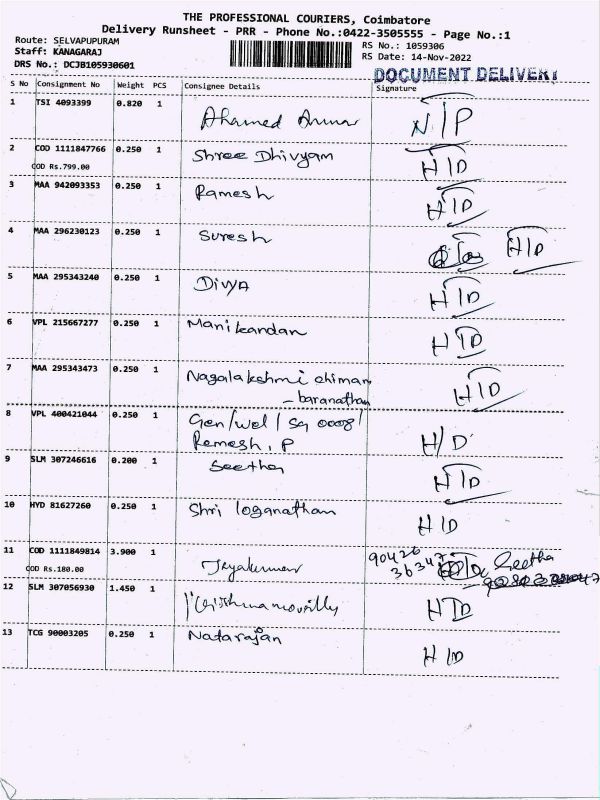 THE PROFESSIONAL COURIERS, Coimbatore
Delivery Runsheet - PRR - Phone No.:0422-3505555 - Page No.:1
Route: SELVAPUPURAM
Staff: KANAGARAJ
DRS No.: DCJB105930601
RS No.: 1059306
RS Date: 14-Nov-2022
DOCUMENT DELIVERY
S No Consignment No Weight PCS Consignee Details Signature
1 TSI 4093399 0.820 1 Ahamed N/P
2 COD 1111847766 0.250 1 Shree Dhivyam H/D
COD Rs.799.00
3 MAA 942093353 0.250 1 Ramesh H/D
4 MAA 296230123 0.250 1 Suresh H/D
5 MAA 295343240 0.250 1 Divya H/D
6 VPL 215667277 0.250 1 Manikandan H/D
7 MAA 295343473 0.250 1 Nagalakshmi chiman H/D
- baranathan
8 VPL 400421044 0.250 1 Gen/wel/sq 0008/
Remesh, P H/D
9 SLM 307246616 0.200 1 Seetha H/D
10 HYD 81627260 0.250 1 Shri loganathan H/D
11 COD 1111849814 3.900 1 Jeyakumar 90426 Seetha
COD Rs.180.00 36347
12 SLM 307056930 1.450 1 H/D
13 TCG 90003205 0.250 1 Natarajan H/D